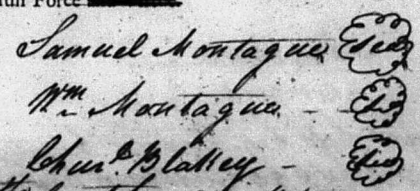 Force
Samuel Montague Seal
Wm Montague - Seal
Churl Blakey - Seal